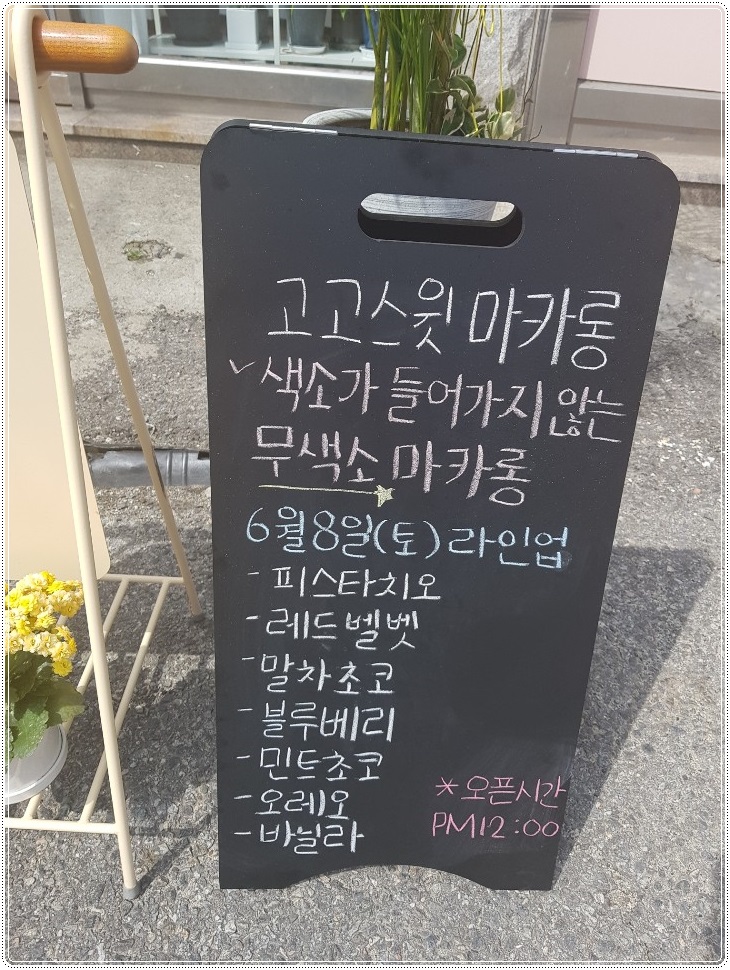 고고스윗 마카롱
✓색소가 들어가지 않는
무색소 마카롱
6월8일(토) 라인업
- 피스타치오
- 레드벨벳
- 말차초코
- 블루베리
- 민트초코
- 오레오
- 바닐라
* 오픈시간
PM12:00